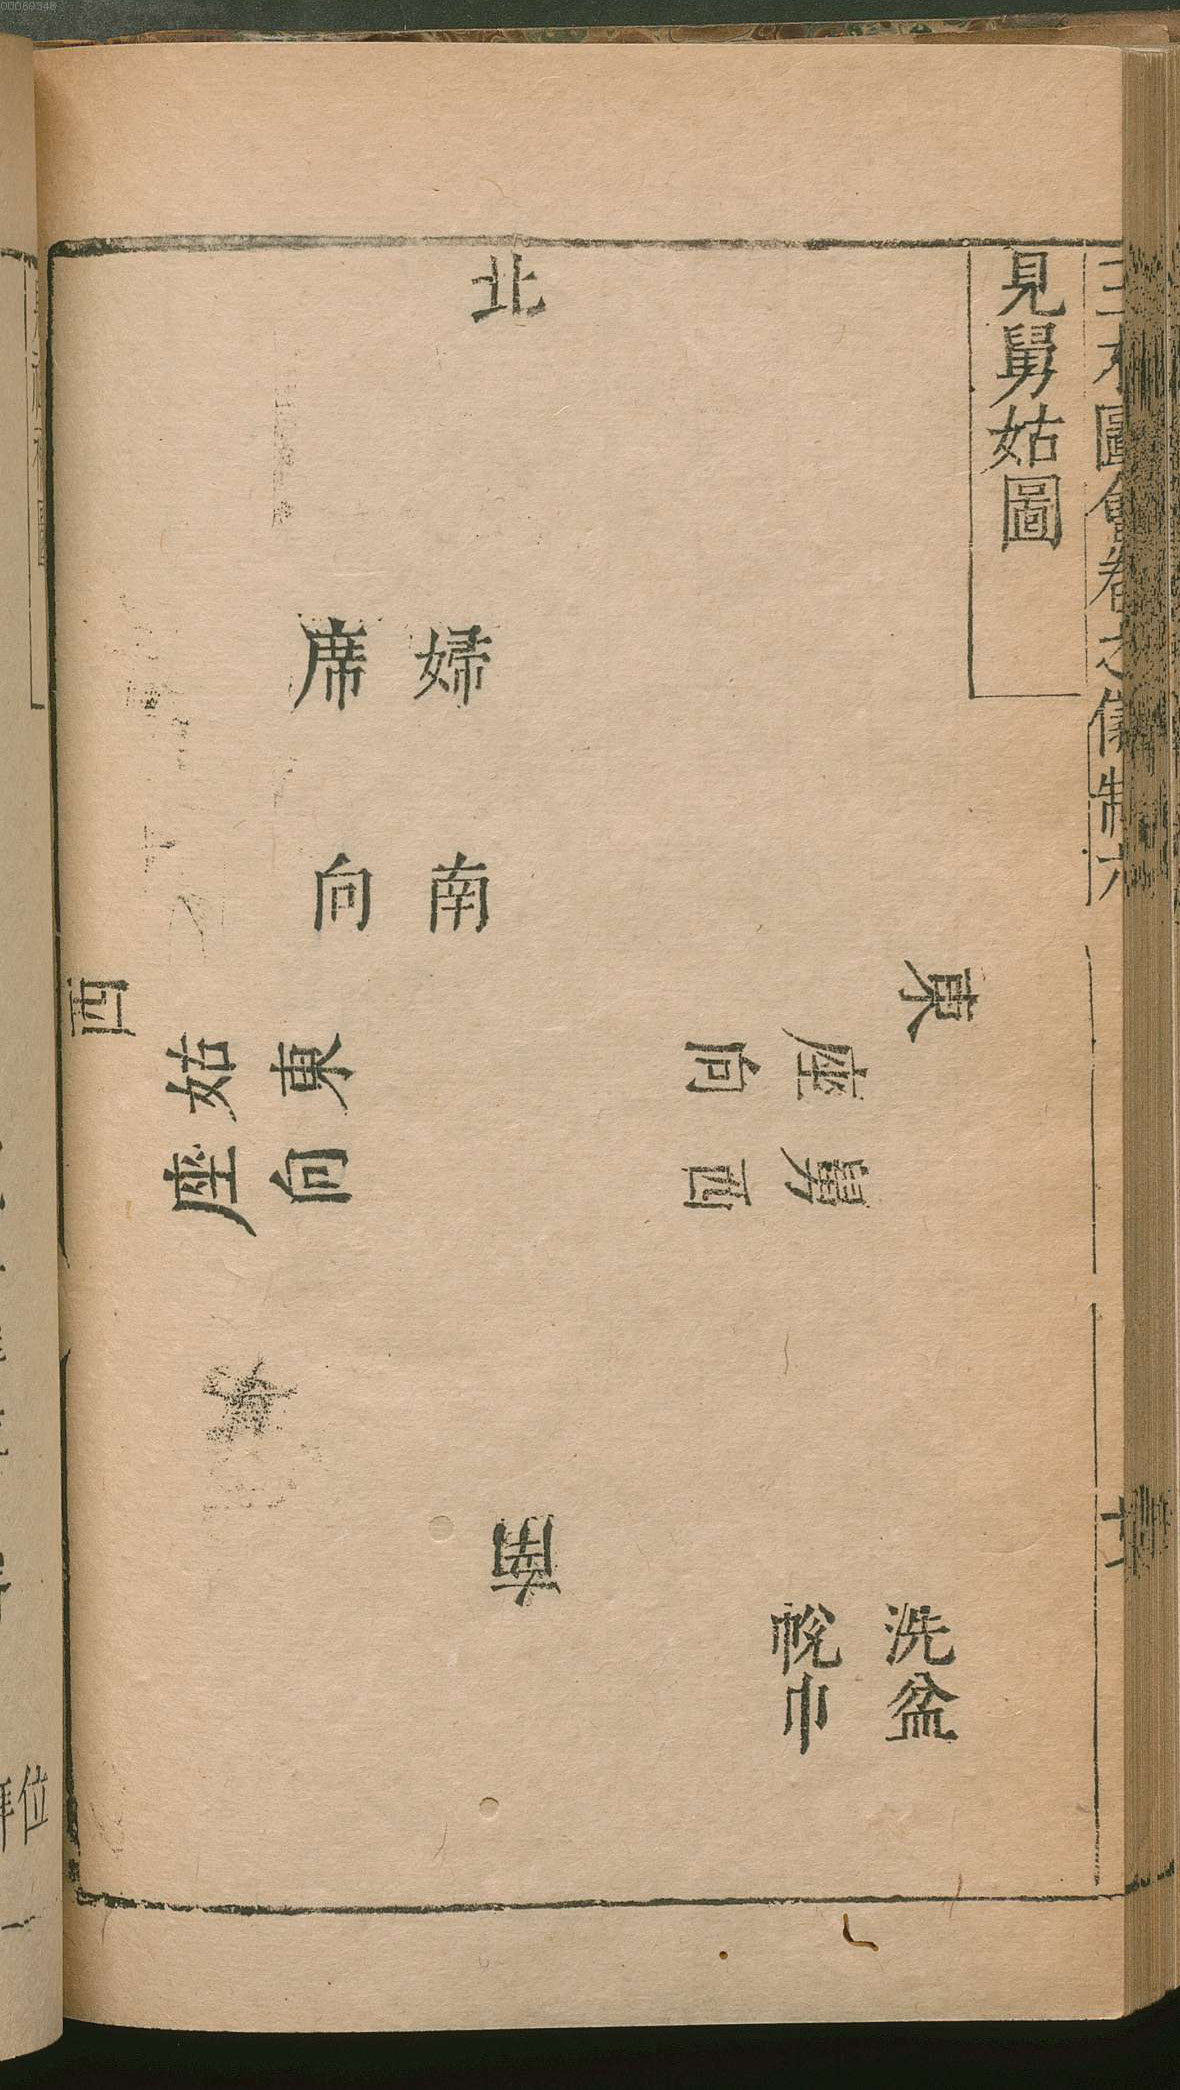 00069348
三才圖會卷之儀制六
見舅姑圖
北
婦
席
南
向
東
舅座
西向
西
姑座
東向
南
洗盆
帨巾
位
拜